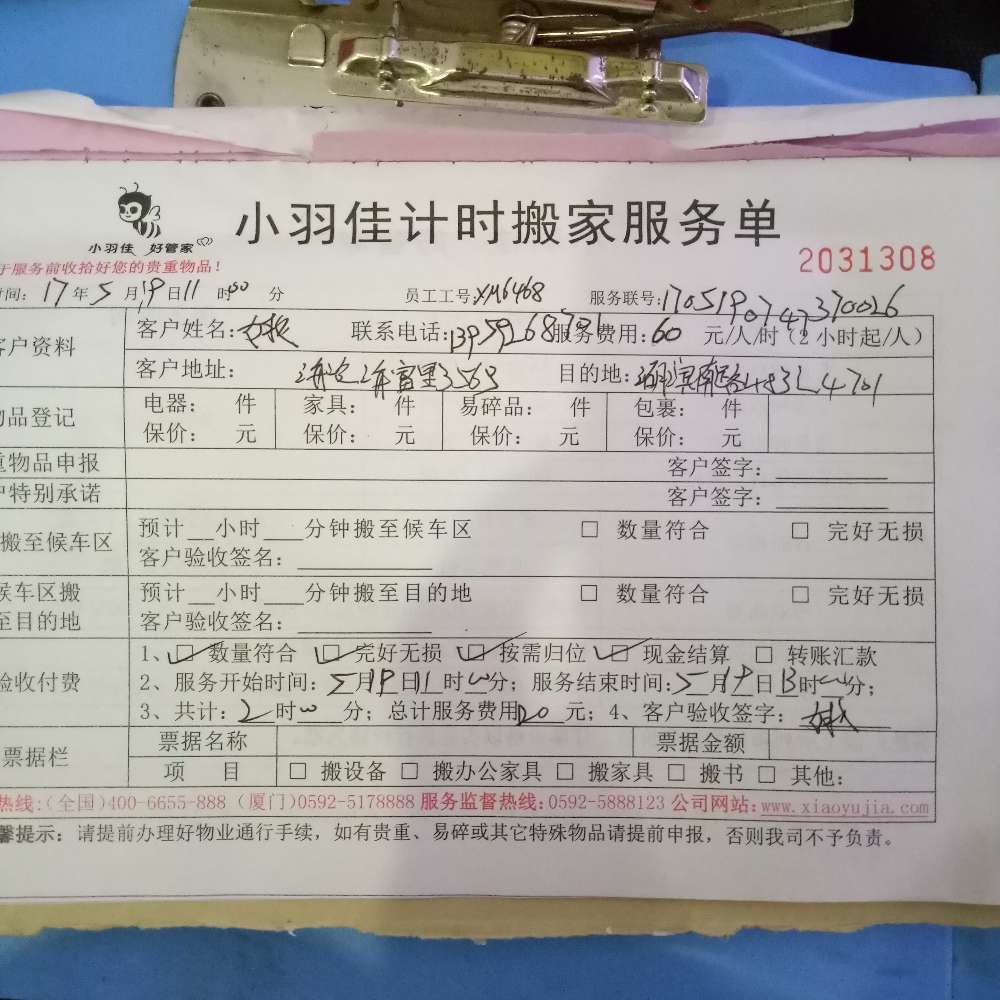 小羽佳 好管家
小羽佳计时搬家服务单
于服务前收拾好您的贵重物品！
2031308
时间：17年5月19日11时00分 员工工号：XM6468 服务联号：170519074370026
客户资料
客户姓名： 联系电话： 服务费用：60 元/人/时（2小时起/人）
客户地址： 目的地：
物品登记
电器： 件 家具： 件 易碎品： 件 包裹： 件
保价： 元 保价： 元 保价： 元 保价： 元
重物品申报 客户签字：
户特别承诺 客户签字：
搬至候车区
预计__小时___分钟搬至候车区 □ 数量符合 □ 完好无损
客户验收签名：
候车区搬至目的地
预计__小时___分钟搬至目的地 □ 数量符合 □ 完好无损
客户验收签名：
验收付费
1、☑ 数量符合 ☑ 完好无损 ☑ 按需归位 ☑ 现金结算 □ 转账汇款
2、服务开始时间：5月19日11时00分；服务结束时间：5月19日13时00分；
3、共计：2时00分；总计服务费用 元；4、客户验收签字：
票据栏
票据名称 票据金额
项 目 □ 搬设备 □ 搬办公家具 □ 搬家具 □ 搬书 □ 其他：
热线：（全国）400-6655-888（厦门）0592-5178888 服务监督热线：0592-5888123 公司网站：www.xiaoyujia.com
馨提示：请提前办理好物业通行手续，如有贵重、易碎或其它特殊物品请提前申报，否则我司不予负责。